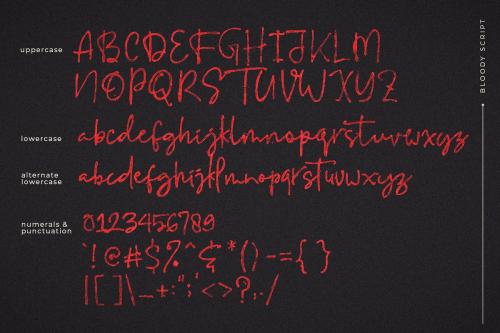 uppercase ABCDEFGHIJKLM
NOPQRSTUVWXYZ
lowercase abcdefghijklmnopqrstuvwxyz
alternate lowercase abcdefghijklmnopqrstuvwxyz
numerals & punctuation 0123456789
`!@#$%^&*()-={}
|[]\_+:";'<>?,./
BLOODY SCRIPT